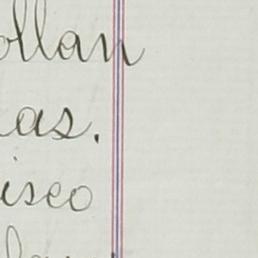 ollan
as.
isco